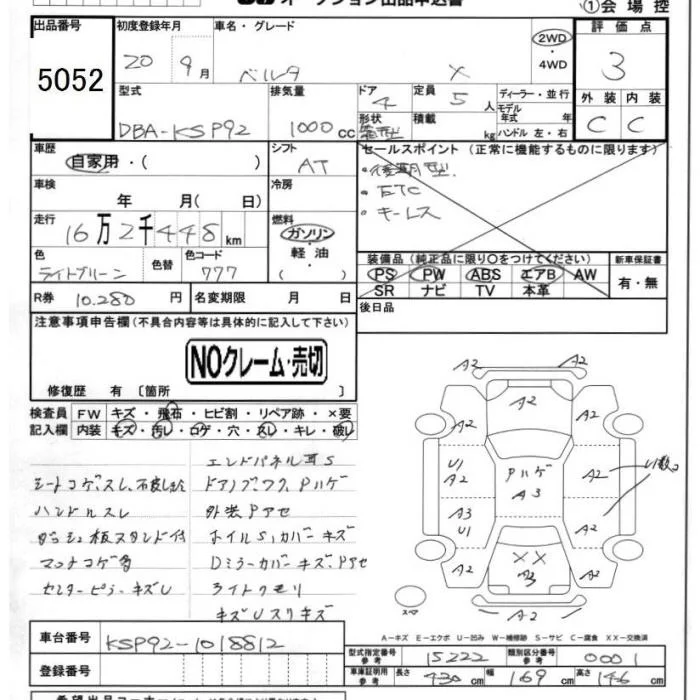 オークション出品申込書
①会場控
出品番号 初度登録年月 車名・グレード 2WD 評価点
5052 20 9月 ベルタ X ・4WD 3
型式 排気量 ドア 定員 ディーラー・並行 外装 内装
DBA-KSP92 1000cc 4 5人 モデル年式 年 C C
形状 箱型 積載 kg ハンドル 左・右
車歴 シフト セールスポイント (正常に機能するものに限ります)
自家用・( ) AT ・後期型
車検 冷房 ・ETC
年 月( 日) ・キーレス
走行 燃料
16万2千448km ガソリン
色 色替 色コード 軽油
ライトブルーン 777 ( )
装備品 (純正品に限り○をつけてください) 新車保証書
PS PW ABS エアB AW 有・無
SR ナビ TV 本革
R券 10.280円 名変期限 月 日 後日品
注意事項申告欄(不具合内容等は具体的に記入して下さい)
NOクレーム・売切
修復歴 有 〔箇所 〕
検査員 FW キズ・飛石・ヒビ割・リペア跡・×要
記入欄 内装 キズ・汚レ・コゲ・穴・スレ・キレ・破レ
エンドパネル耳S
シートコゲ、スレ、
ドアノブ、ワク、Pハゲ
ハンドルスレ
外装Pアセ
ダッシュ板スタンド付
ホイルS、カバーキズ
マットコゲ多
DミラーカバーキズPアセ
センターピラーキズU
ライトクモリ
キズUスリキズ
A2 A2
A2
A2 A2
U1 A2 Pハゲ A3 A2 U1散コ
A3 U1 A2
A2 XX A3 A2
A2
スペア
A-キズ E-エクボ U-凹み W-補修跡 S-サビ C-腐食 XX-交換済
車台番号 KSP92-1018812
型式指定番号 参考 15222 類別区分番号 参考 0001
登録番号
車庫証明用 参考 長さ 430cm 幅 169cm 高さ 146cm
希望出品コーナー